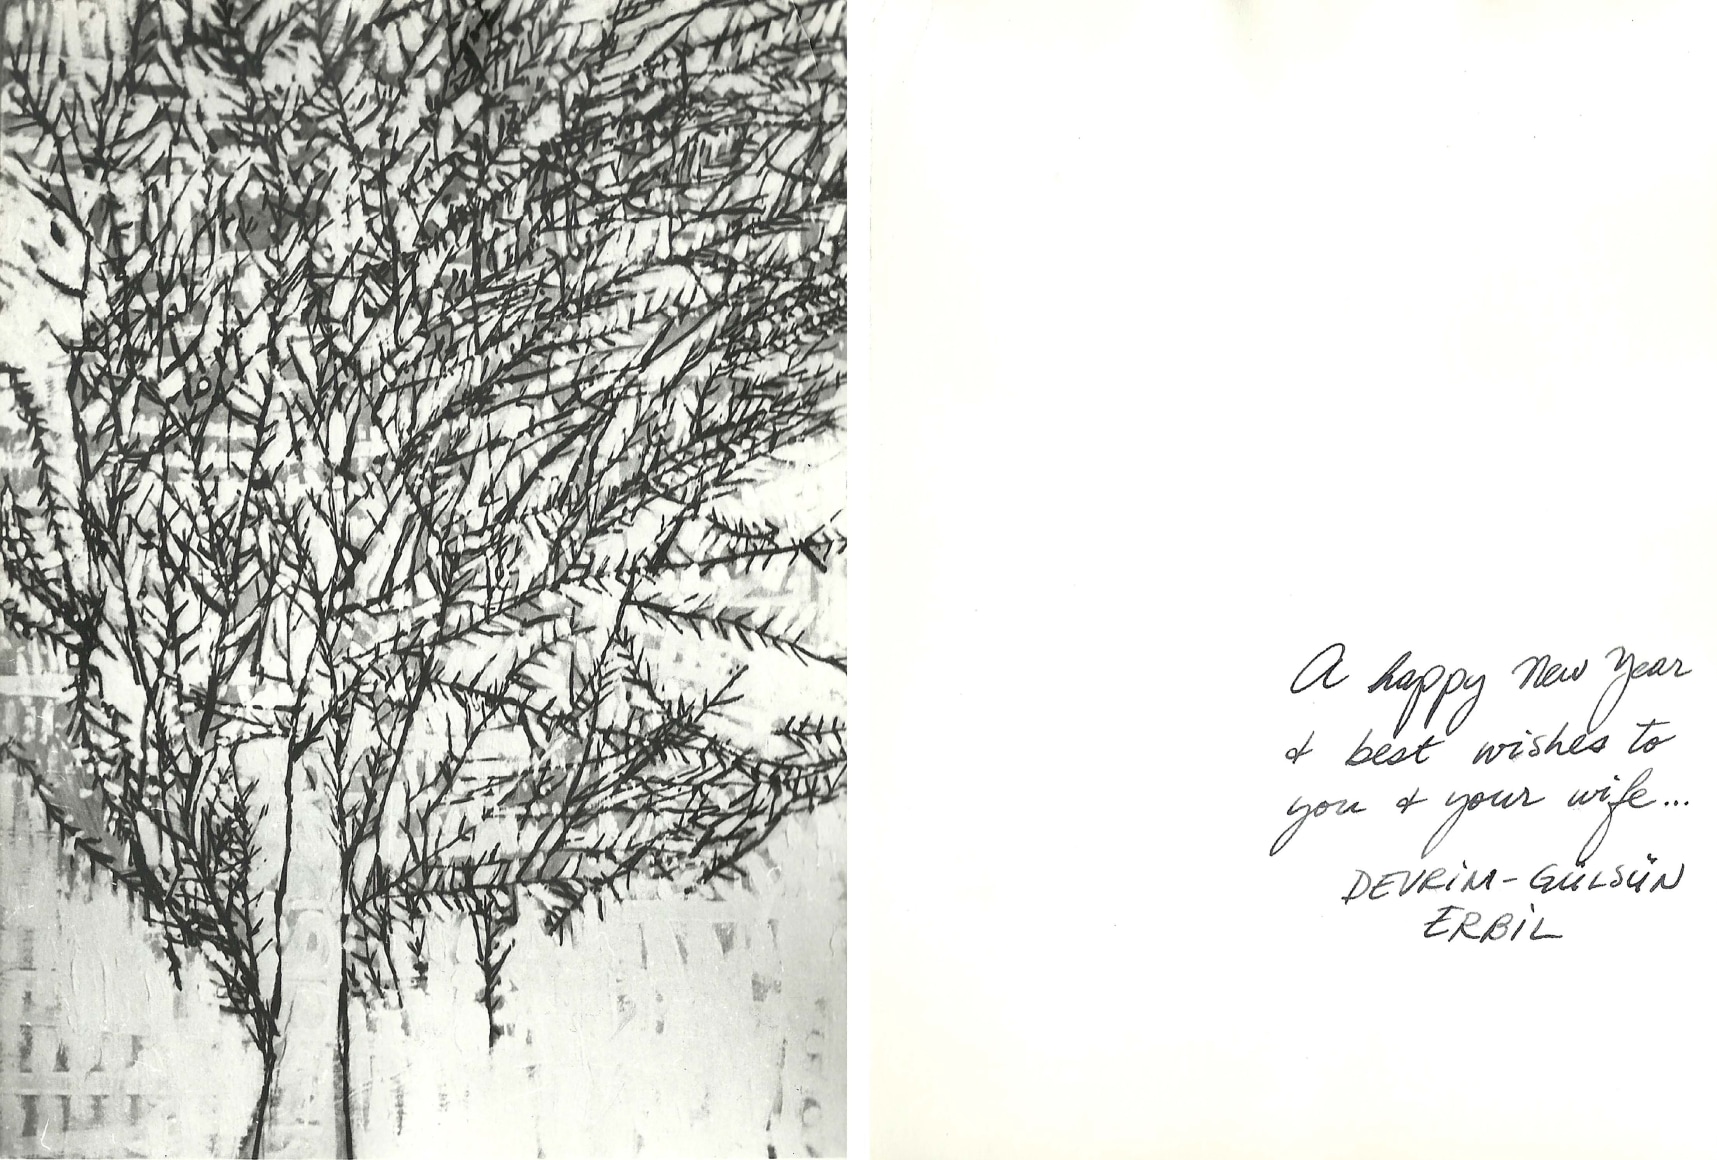 A happy New Year
& best wishes to
you & your wife...
DEVRİM-GÜLSÜN
ERBİL